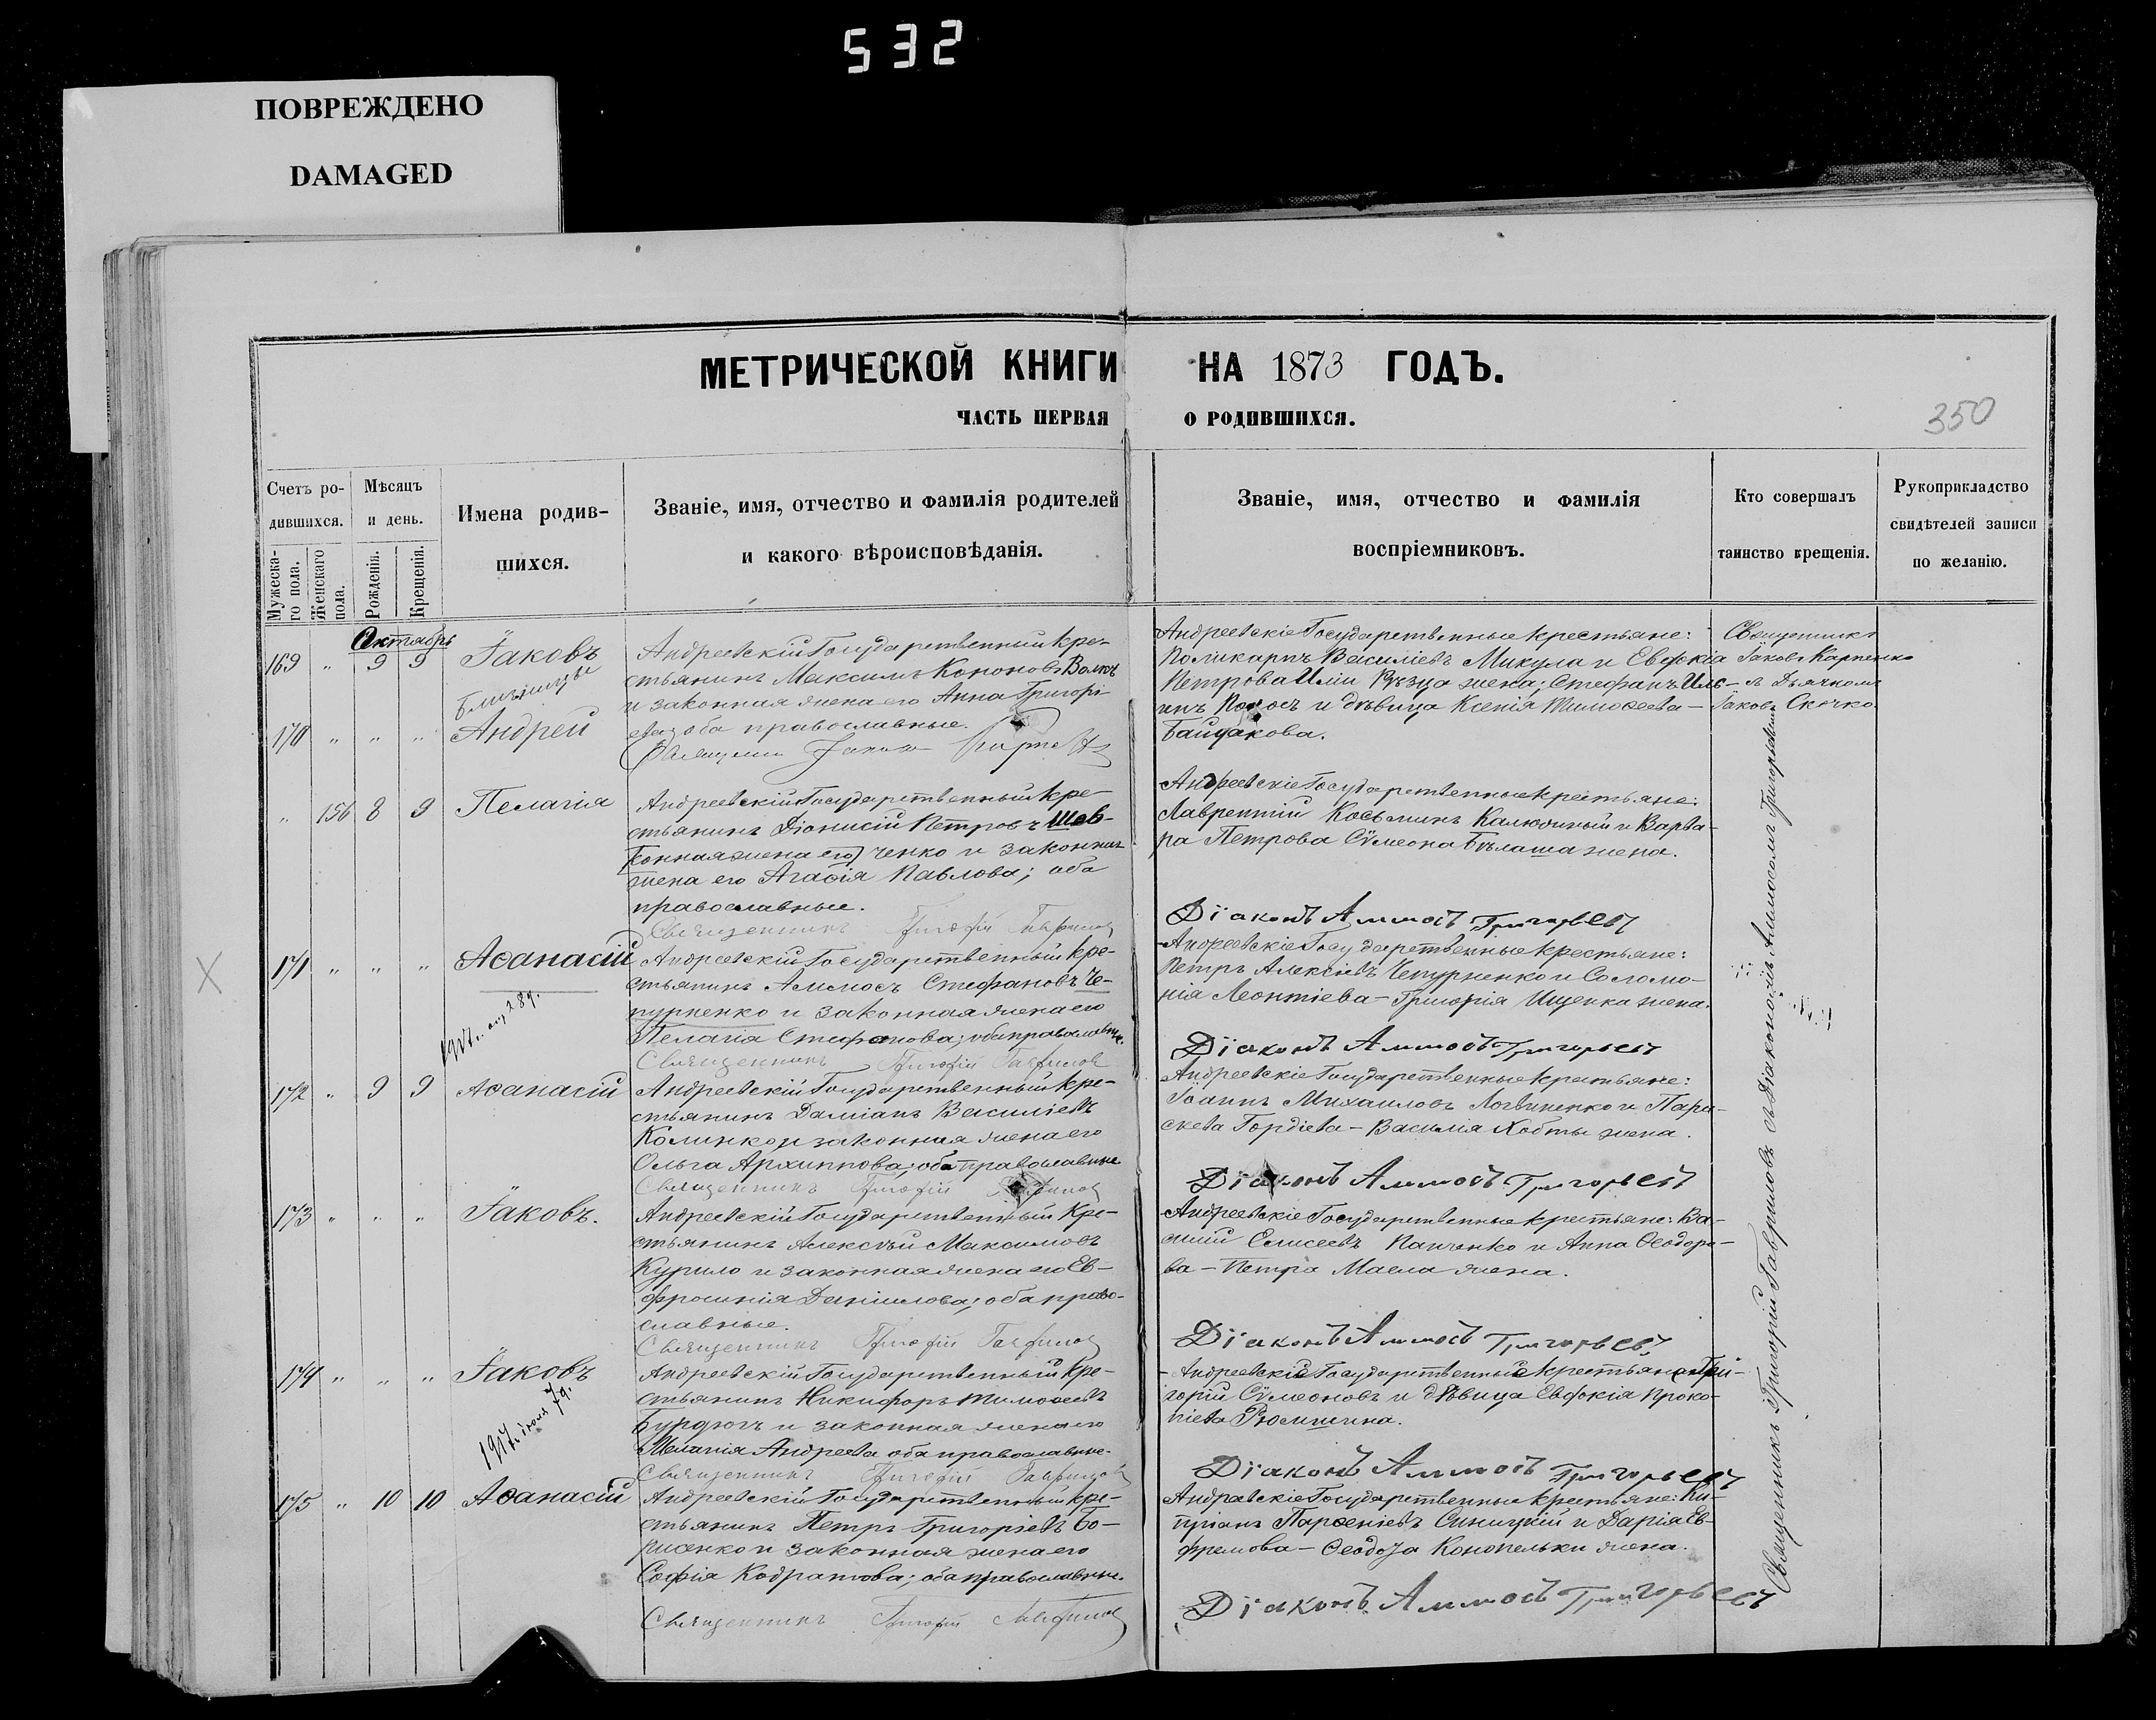 532
ПОВРЕЖДЕНО
DAMAGED
МЕТРИЧЕСКОЙ КНИГИ НА 1873 ГОДЪ.
ЧАСТЬ ПЕРВАЯ О РОДИВШИХСЯ.
350
Счетъ ро-
дившихся.
Мужеска-
го пола.
Женскаго
пола.
Мѣсяцъ
и день.
Рожденія.
Крещенія.
Имена родив-
шихся.
Званіе, имя, отчество и фамилія родителей
и какого вѣроисповѣданія.
Званіе, имя, отчество и фамилія
воспріемниковъ.
Кто совершалъ
таинство крещенія.
Рукоприкладство
свидѣтелей записи
по желанію.
Октябрь
169 " 9 9 Іаковъ
близнецы
170 " " " Андрей
Андреевскій Государственный кре-
стьянинъ Максимъ Кононовъ Волкъ
и законная жена его Анна Григорі-
ева; оба православные.
Священникъ Іаковъ Карпенко
Андреевскіе Государственные крестьяне:
Поликарпъ Василіевъ Микула и Евфокіа
Петрова Иліи жена; Стефанъ Иль-
инъ и дѣвица Ксенія Тимоѳеева
Байцакова.
Священникъ
Іаковъ Карпенко
съ Дьячкомъ
Іаковъ Скочко.
" 156 8 9 Пелагія
Андреевскій Государственный кре-
стьянинъ Діонисій Петровъ Шев-
(конная жена его) ченко и законная
жена его Агаѳія Павлова; оба
православные.
Священникъ Григорій Гавриловъ
Андреевскіе Государственные крестьяне:
Лаврентій Косьминъ Калюжный и Варва-
ра Петрова Сѵмеона Бѣлаша жена.
Діаконъ Аммосъ Григорьевъ
X
171 " " " Аѳанасій
1917. 28 д.
Андреевскій Государственный кре-
стьянинъ Аммосъ Стефановъ Че-
пурненко и законная жена его
Пелагія Стефанова; оба православные.
Священникъ Григорій Гавриловъ
Андреевскіе Государственные крестьяне:
Петръ Алексіевъ Чепурненко и Соломо-
нія Леонтіева - Григорія Ищенка жена.
Діаконъ Аммосъ Григорьевъ
172 " 9 9 Аѳанасій
Андреевскій Государственный кре-
стьянинъ Даміанъ Василіевъ
Колинко и законная жена его
Ольга Архиппова; оба православные
Священникъ Григорій Гавриловъ
Андреевскіе Государственные крестьяне:
Іоаннъ Михаиловъ Логвиненко и Пара-
скева Гордіева - Василія Хобты жена.
Діаконъ Аммосъ Григорьевъ
173 " " " Іаковъ.
Андреевскій Государственный Кре-
стьянинъ Алексѣй Максимовъ
Курило и законная жена его Ев-
фросинія Даніилова; оба право-
славные.
Священникъ Григорій Гавриловъ
Андреевскіе Государственные крестьяне: Ва-
силій Елисеевъ Панченко и Анна Ѳеодоро-
ва - Петра Масла жена.
Діаконъ Аммосъ Григорьевъ
174 " " " Іаковъ
1917. іюня 7 д.
Андреевскій Государственный Кре-
стьянинъ Никифоръ Тимоѳеевъ
Бурдюгъ и законная жена его
Меланія Андреева оба православные.
Священникъ Григорій Гавриловъ
Андреевскіе Государственные крестьяне Гри-
горій Сѵмеоновъ и дѣвица Евфокія Проко-
піева Рюмшина.
Діаконъ Аммосъ Григорьевъ
175 " 10 10 Аѳанасій
Андреевскій Государственный кре-
стьянинъ Петръ Григоріевъ Бо-
рисенко и законная жена его
Софія Кодратова; оба православные.
Священникъ Григорій Гавриловъ
Андреевскіе Государственные крестьяне: Ки-
пріанъ Парѳеніевъ Синицкій и Дарія Ев-
фремова - Ѳеодора Конопельки жена.
Діаконъ Аммосъ Григорьевъ
Священникъ Григорій Гавриловъ съ Діакономъ Аммосомъ Григорьевымъ